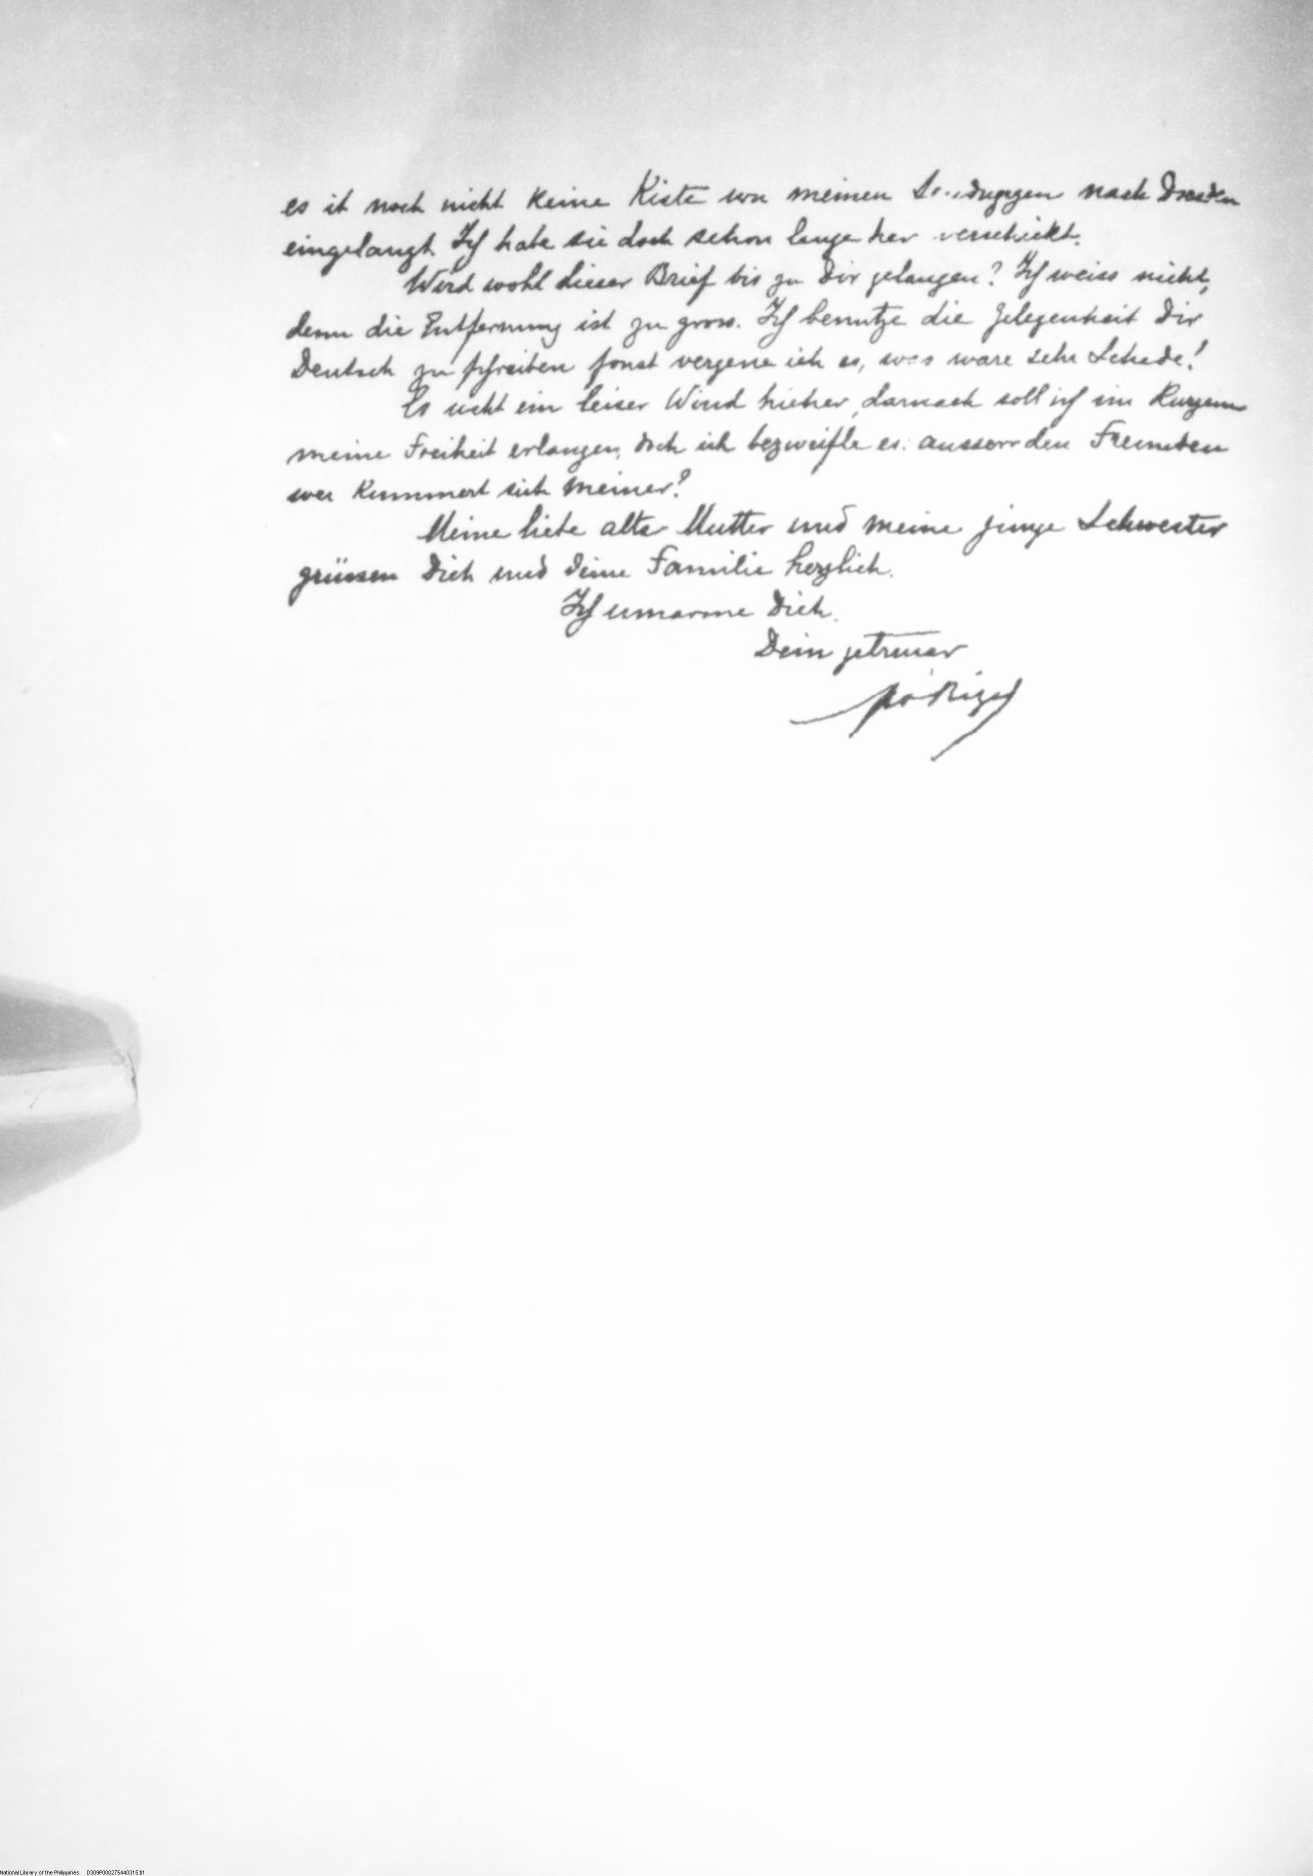 es it noch nicht keine Kiste von meinen nach Dresden
eingelangt. Ich habe sie doch schon lange her verschickt.
Wird wohl dieser Brief bis zu Dir gelangen? Ich weiss nicht,
denn die Entfernung ist zu gross. Ich benutze die Gelegenheit Dir
Deutsch zu schreiben sonst vergesse ich es, was ware sehr Schade!
Es weht ein leiser Wind hieher, darnach soll ich im Kurzem
meine Freiheit erlangen, doch ich bezweifle es: ausser den Fremden
wer kummert sich meiner?
Meine liebe alte Mutter und meine junge Schwester
grüssen Dich und deine Familie herzlich.
Ich umarme Dich.
Dein getreuer
National Library of the Philippines